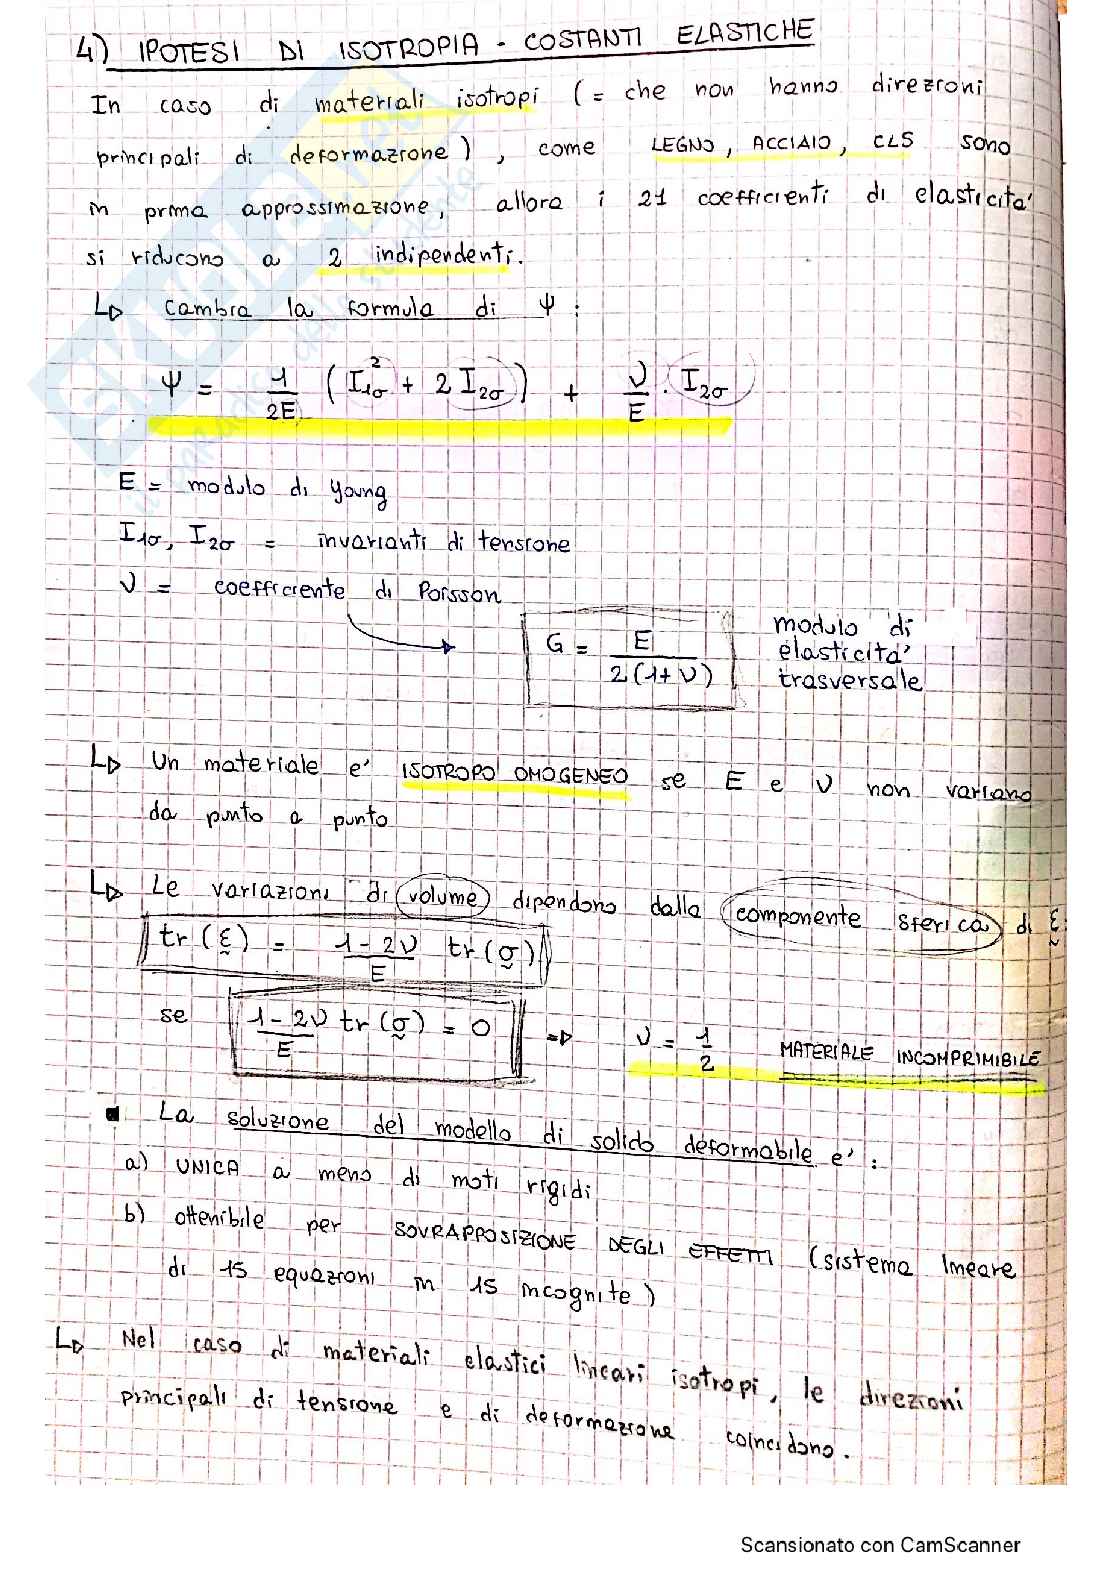 4) IPOTESI DI ISOTROPIA - COSTANTI ELASTICHE
In caso di materiali isotropi (= che non hanno direzioni
principali di deformazione), come LEGNO, ACCIAIO, CLS sono
in prima approssimazione, allora i 21 coefficienti di elasticita'
si riducono a 2 indipendenti.
↳ Cambia la formula di Ψ:
Ψ = 1/2E (I₁σ² + 2 I₂σ) + ν/E · I₂σ
E = modulo di Young
I₁σ, I₂σ = invarianti di tensione
ν = coefficiente di Poisson
G = E/2(1+ν) modulo di elasticita' trasversale
↳ Un materiale e' ISOTROPO OMOGENEO se E e ν non variano
da punto a punto
↳ Le variazioni di volume dipendono dalla componente sferica di ε
tr(ε) = 1-2ν/E tr(σ)
se 1-2ν/E tr(σ) = 0 => ν = 1/2 MATERIALE INCOMPRIMIBILE
▪ La soluzione del modello di solido deformabile e':
a) UNICA a meno di moti rigidi
b) ottenibile per SOVRAPPOSIZIONE DEGLI EFFETTI (sistema lineare
di 15 equazioni in 15 incognite)
↳ Nel caso di materiali elastici lineari isotropi, le direzioni
principali di tensione e di deformazione coincidono.
Scansionato con CamScanner